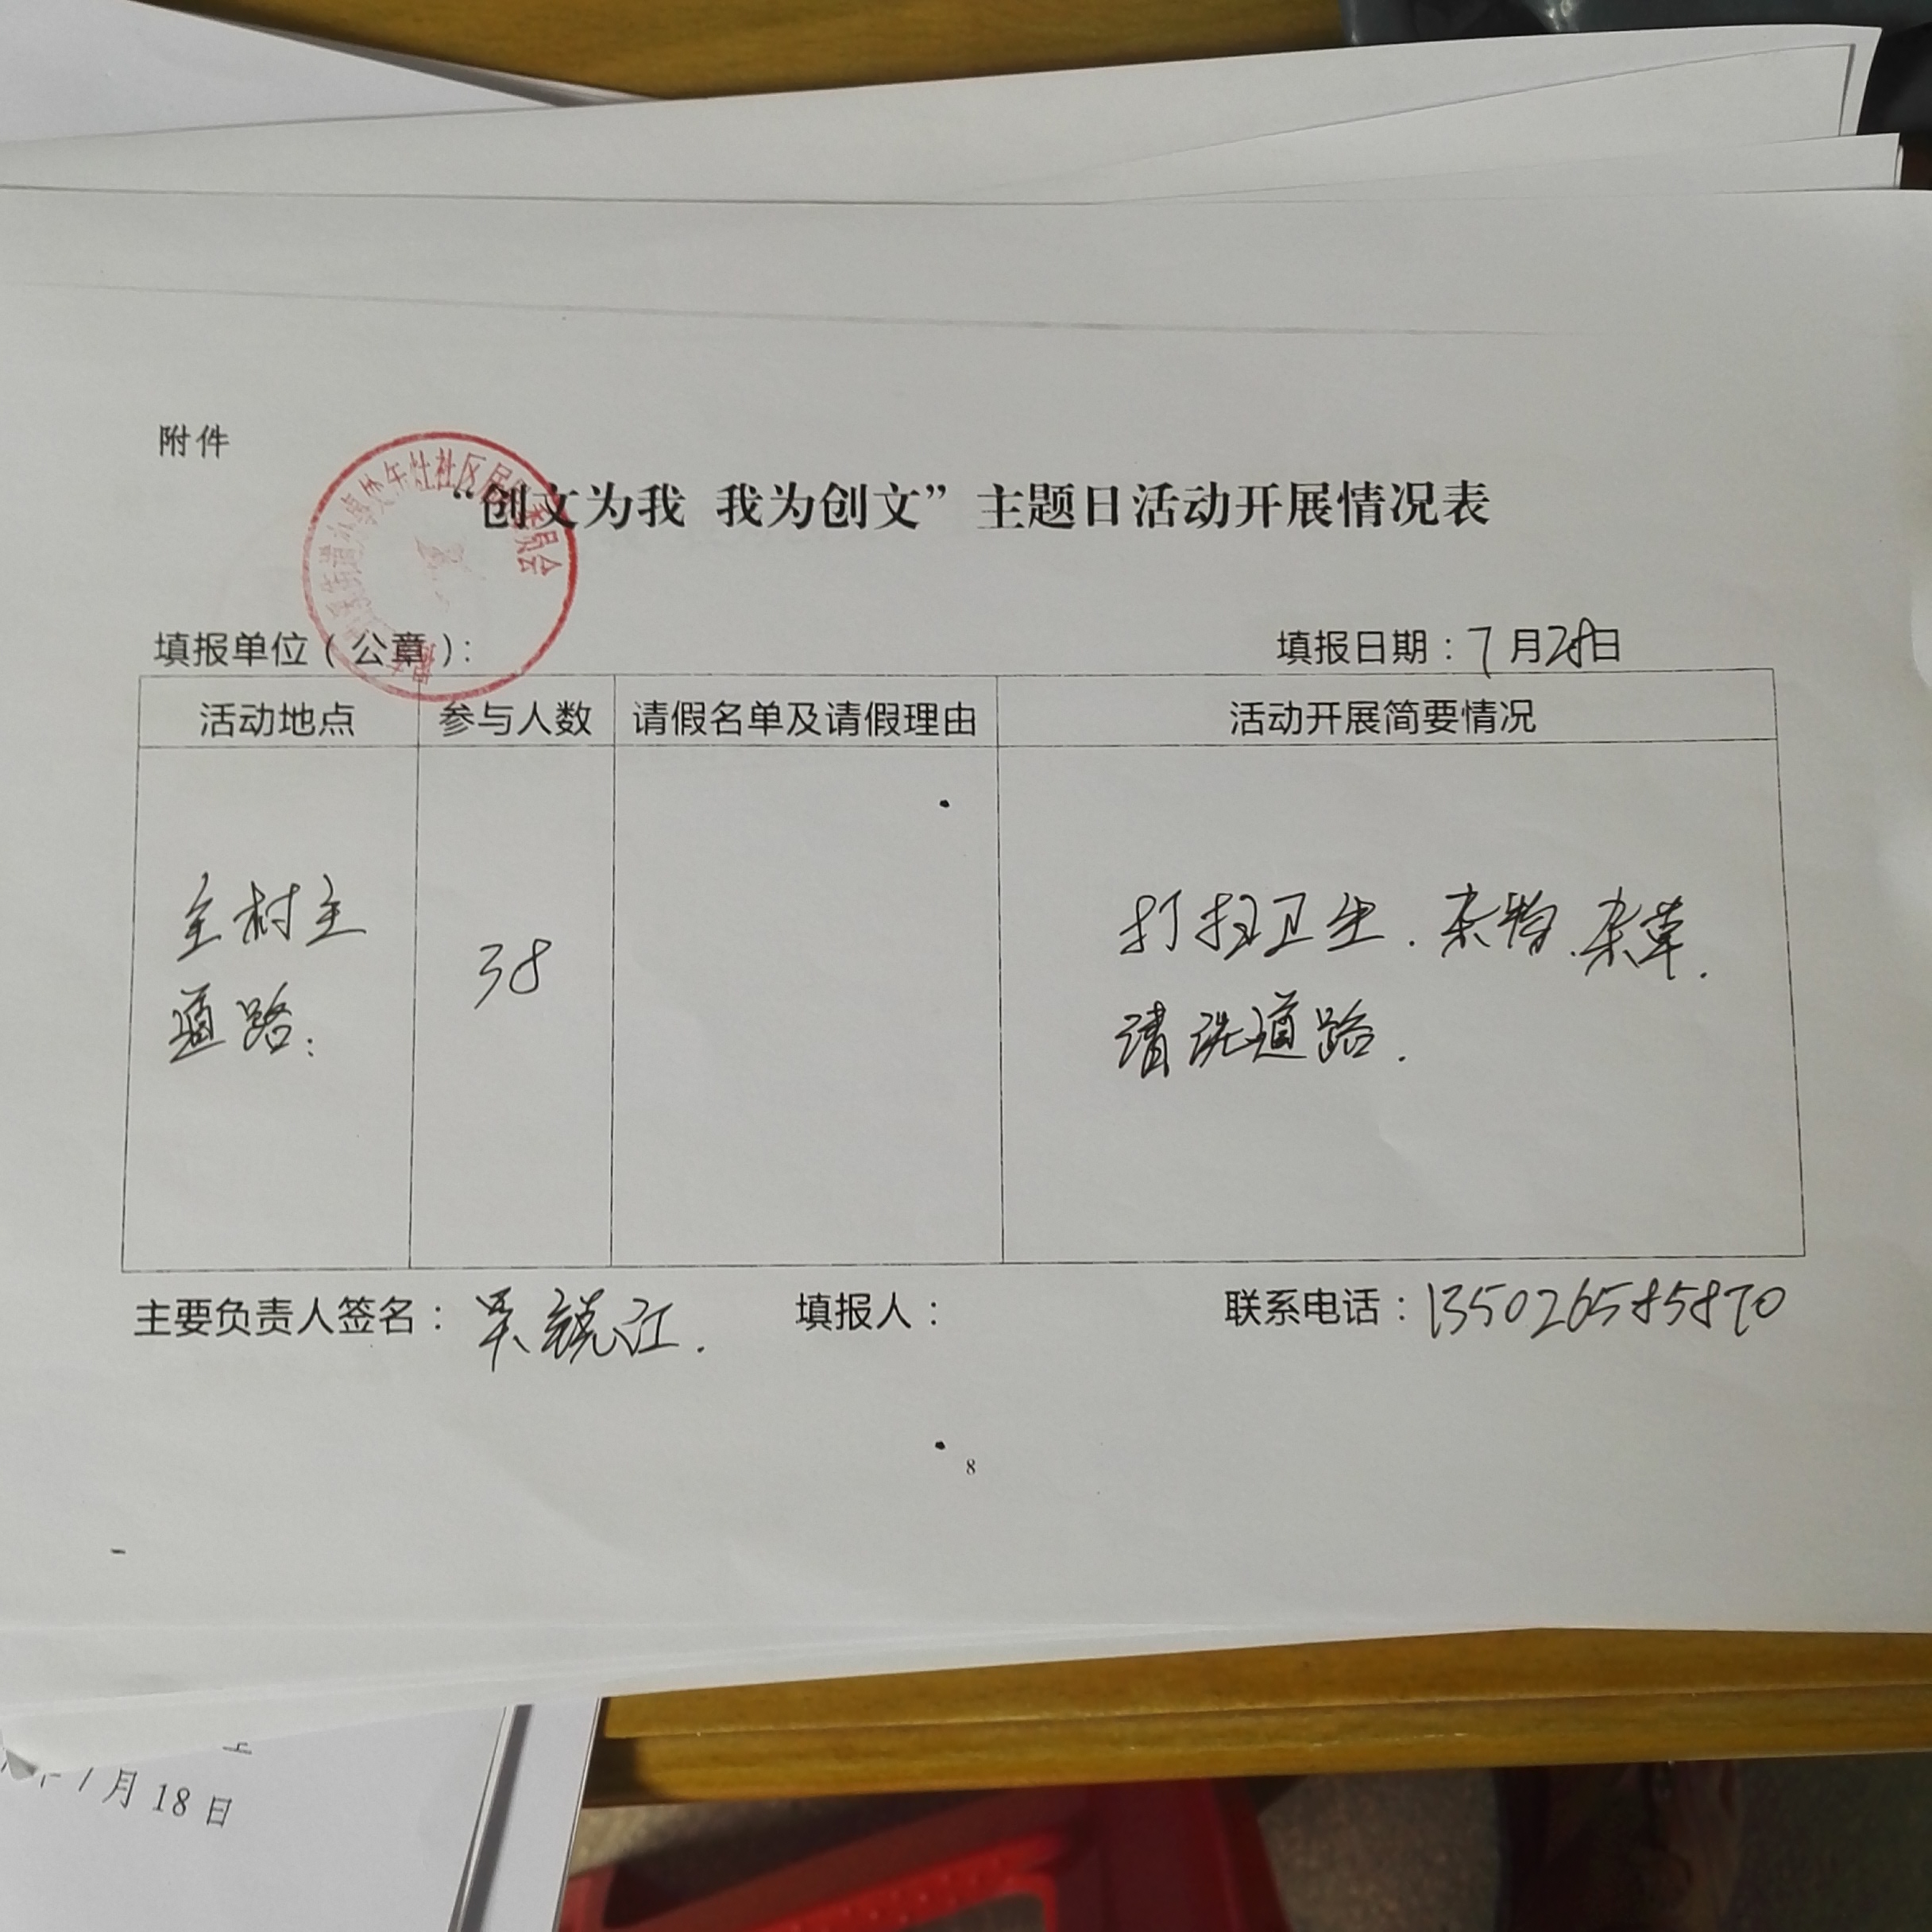 附件
“创文为我 我为创文”主题日活动开展情况表
午灶社区居
委员会
填报单位(公章):
填报日期:7月28日
活动地点
参与人数
请假名单及请假理由
活动开展简要情况
全村主
道路:
38
打扫卫生.杂物.杂草.
清洗道路.
主要负责人签名:吴锐江.
填报人:
联系电话:135026585870
8
月18日